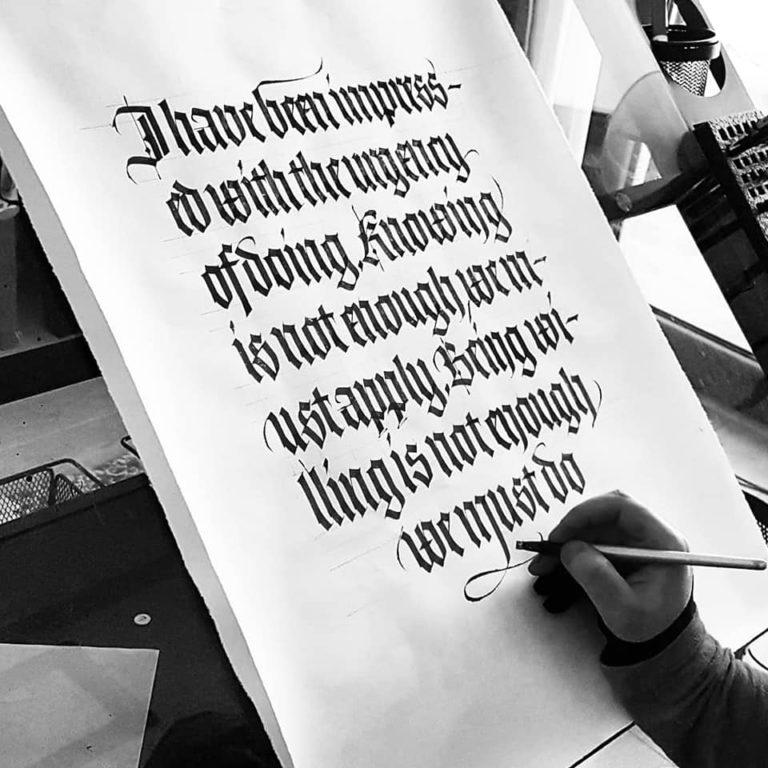 I have been impress-
ed with the urgency
of doing. Knowing
is not enough, we m-
ust apply. Being wi-
lling is not enough
we must do